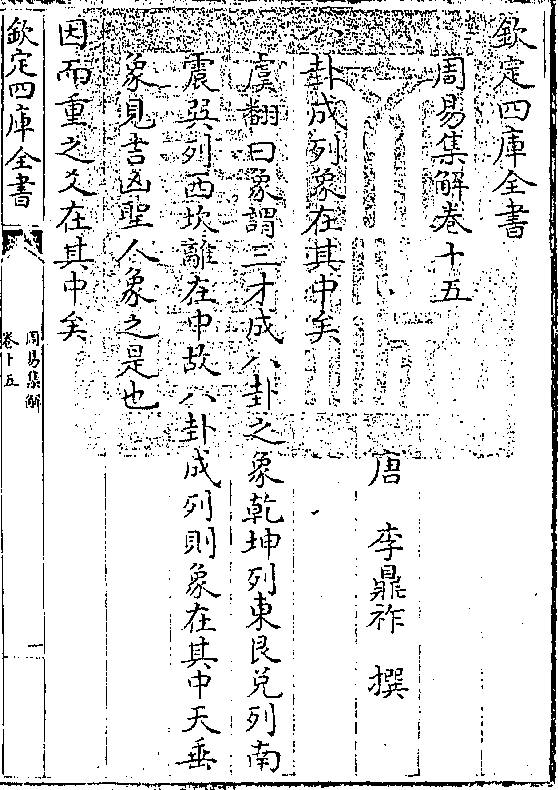 欽定四庫全書
周易集解卷十五
唐 李鼎祚 撰
八卦成列象在其中矣
虞翻曰象謂三才成八卦之象乾坤列東艮兌列南
震巽列西坎離在中故八卦成列則象在其中天垂
象見吉凶聖人象之是也
因而重之爻在其中矣
欽定四庫全書
周易集解
卷十五
一